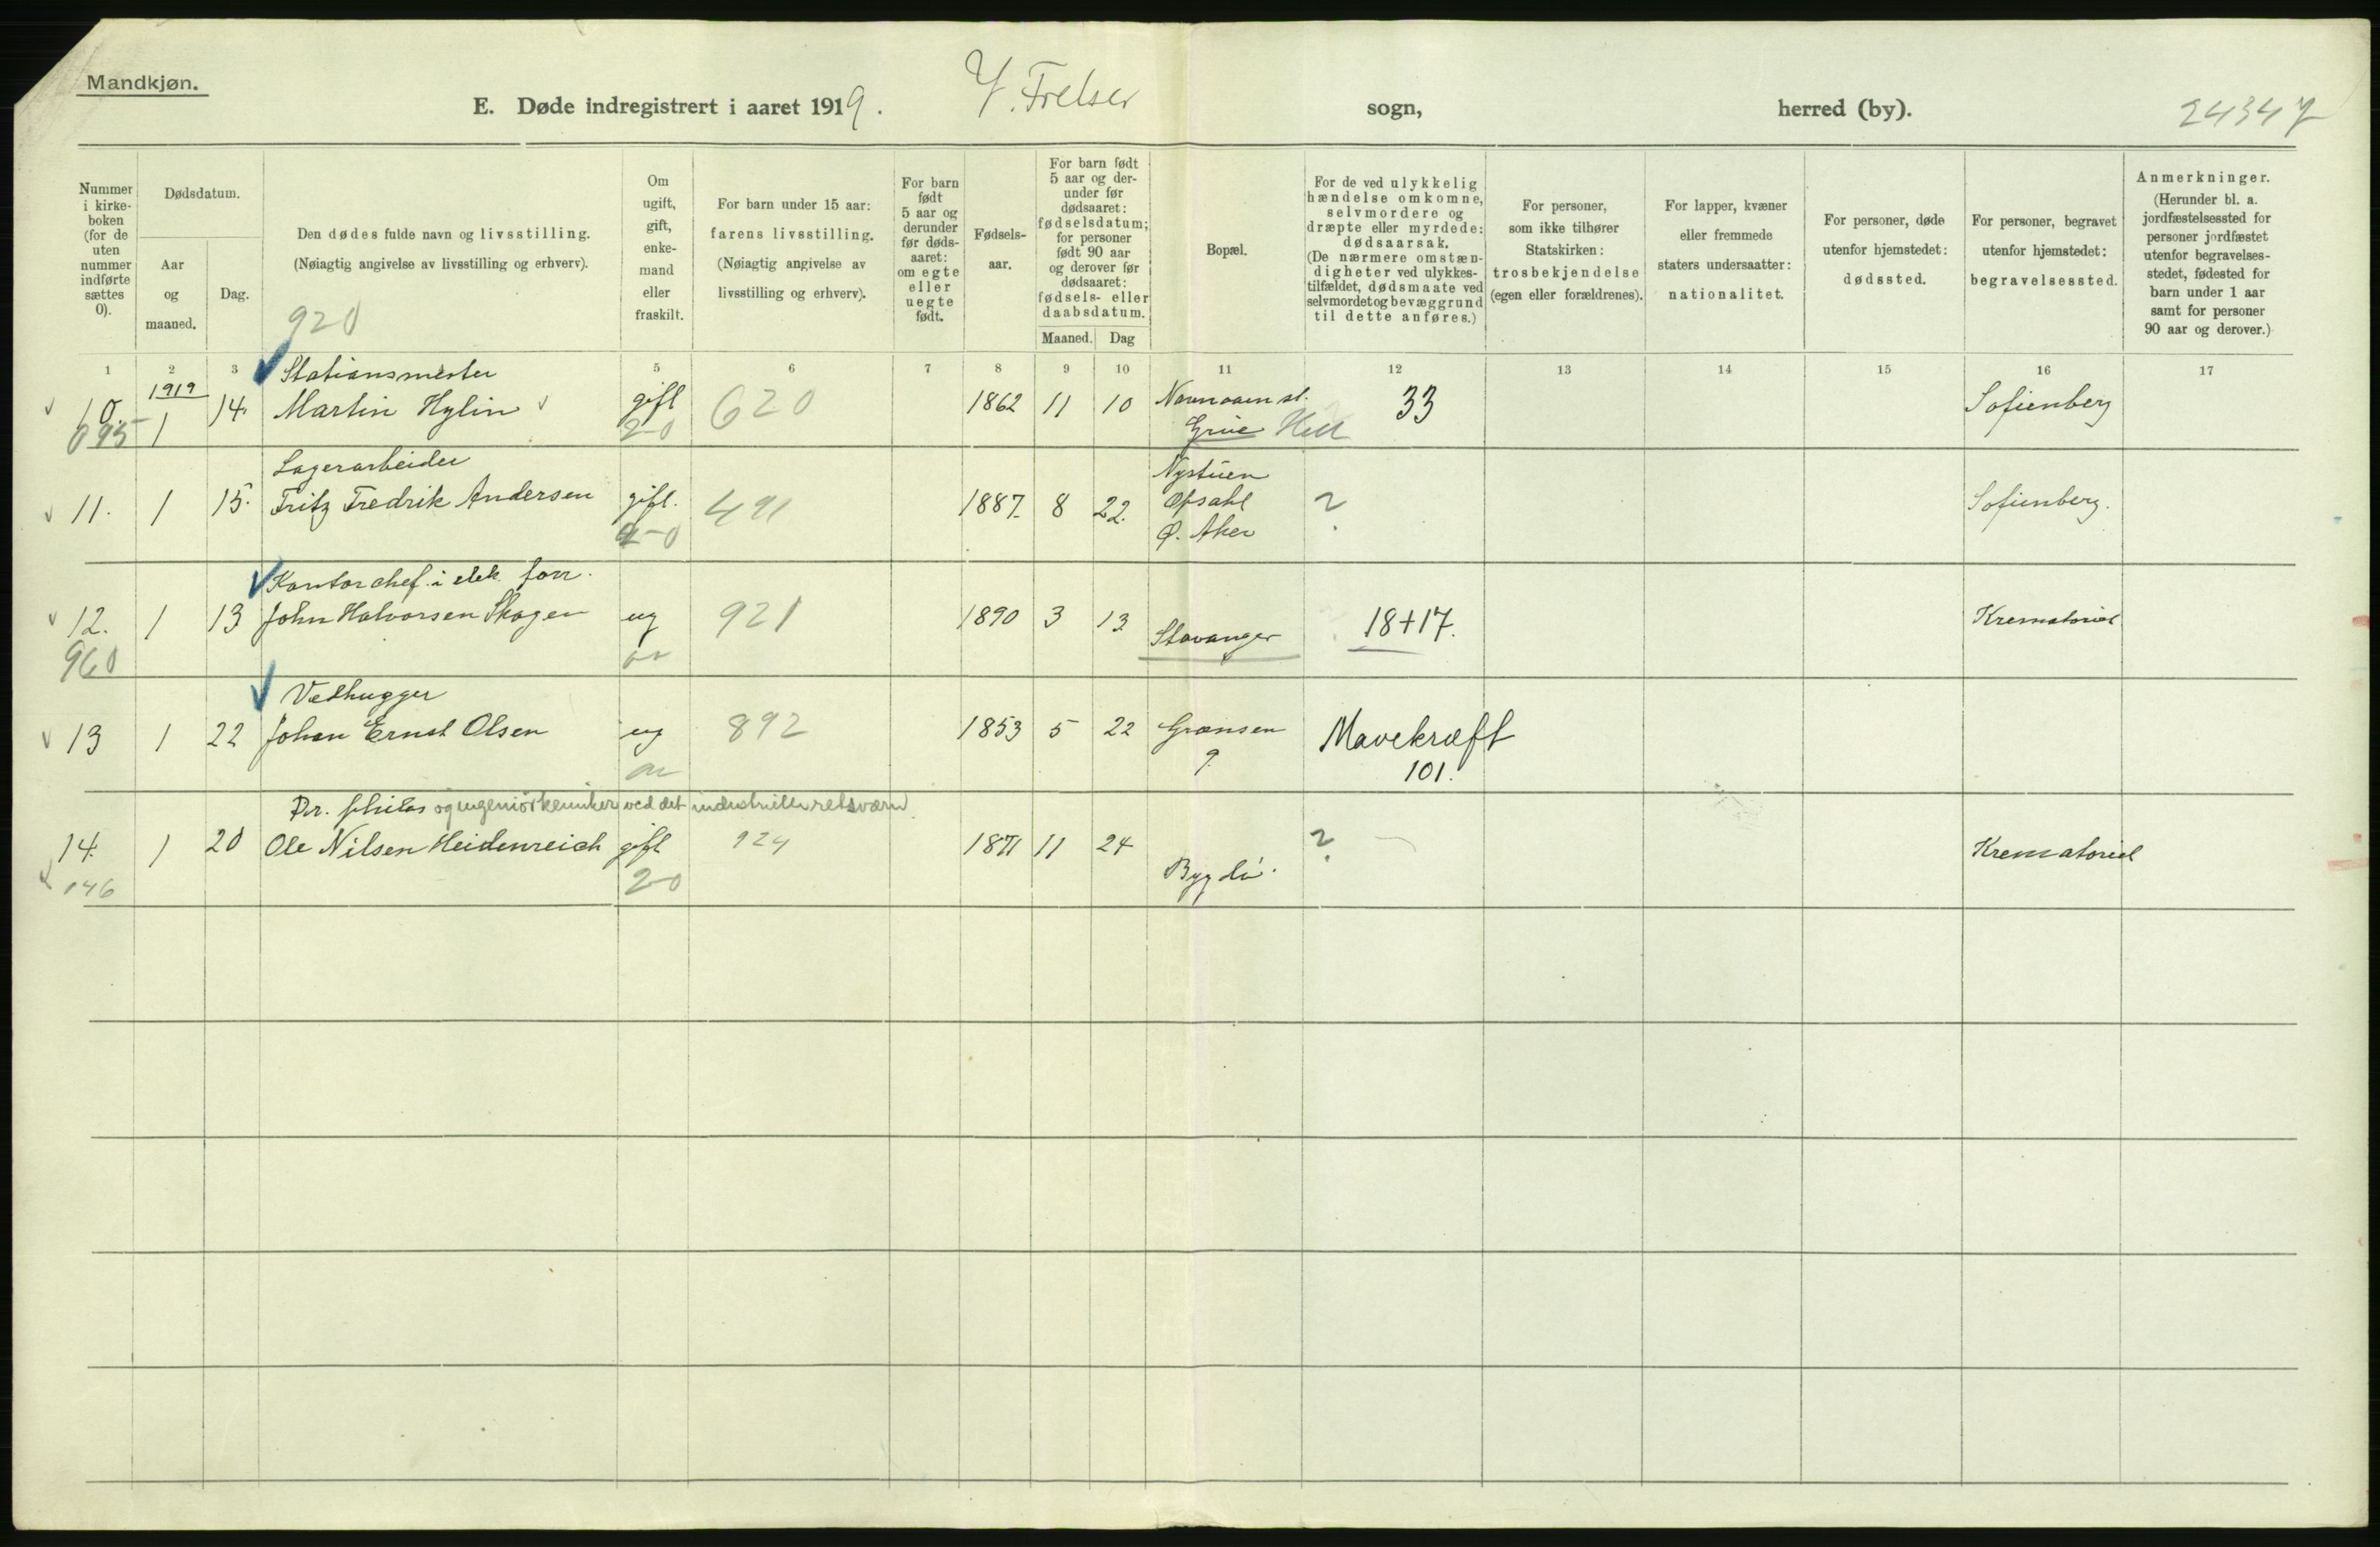 Mandkjøn.
E. Døde indregistrert i aaret 1919. V. Frelser sogn, herred (by). 24347
Nummer i kirke-boken (for de uten nummer indførte sættes 0).
Dødsdatum.
Aar og maaned.
Dag.
Den dødes fulde navn og livsstilling.
(Nøiagtig angivelse av livsstilling og erhverv).
920
Om ugift, gift, enke-mand eller fraskilt.
For barn under 15 aar: farens livsstilling. (Nøiagtig angivelse av livsstilling og erhverv).
For barn født 5 aar og derunder før døds-aaret: om egte eller uegte født.
Fødsels-aar.
For barn født 5 aar og der-under før dødsaaret: fødselsdatum; for personer født 90 aar og derover før dødsaaret: fødsels- eller daabsdatum.
Maaned. Dag
Bopæl.
For de ved ulykkelig hændelse omkomne, selvmordere og dræpte eller myrdede: dødsaarsak. (De nærmere omstæn-digheter ved ulykkes-tilfældet, dødsmaate ved selvmordet og bevæggrund til dette anføres.)
For personer, som ikke tilhører Statskirken: trosbekjendelse (egen eller forældrenes).
For lapper, kvæner eller fremmede staters undersaatter: nationalitet.
For personer, døde utenfor hjemstedet: dødssted.
For personer, begravet utenfor hjemstedet: begravelsessted.
Anmerkninger. (Herunder bl. a. jordfæstelsessted for personer jordfæstet utenfor begravelses-stedet, fødested for barn under 1 aar samt for personer 90 aar og derover.)
1 2 3 5 6 7 8 9 10 11 12 13 14 15 16 17
1919 Stationsmester
10. 1 14. Martin Hylin gift 620 1862 11 10 st. 33 Sofienberg
695 2-0 Grue
Lagerarbeider Nystuen
11. 1 15. Fritz Fredrik Andersen gift. 491 1887. 8 22. Opsahl ? Sofienberg.
2-0 Ø. Aker
Kontorchef i elek. forr.
12. 1 13 John Halvorsen Skagen ug 921 1890 3 13 Stavanger 18+17. Krematoriet
960
Vedhugger
13 1 22 Johan Ernst Olsen ug 892 1853 5 22 Grænsen Mavekræft
9. 101.
Dr. philos og ingeniørkemiker ved det industrielle retsværn
14. 1 20 Ole Nilsen Heidenreich gift 924 1871 11 24 Bygdö. ? — Krematoriet
146 2-0